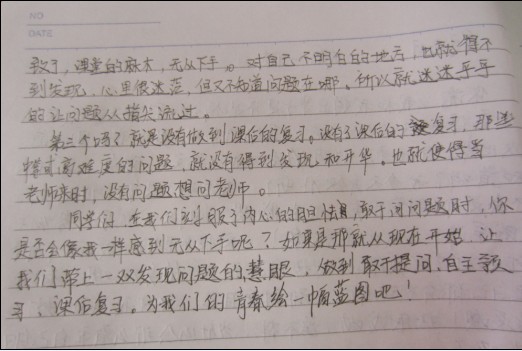 NO
DATE
歌了，课堂的麻木，无从下手。对自己不明白的地方，也就得不
到发现，心里很迷茫，但又不知道问题在哪。所以就迷迷乎乎
的让问题从指尖流过。
第三个吗？就是没有做到课后的复习。没有了课后的复习，那些
样式高难度的问题，就没有得到发现和升华。也就使得当
老师来时，没有问题想问老师。
同学们，在我们刻服了内心的胆怯，敢于问问题时，你
是否会像我一样感到无从下手呢？如果是那就从现在开始，让
我们带上一双发现问题的慧眼，做到敢于提问、自主预
习、课后复习。为我们的青春绘一幅蓝图吧！